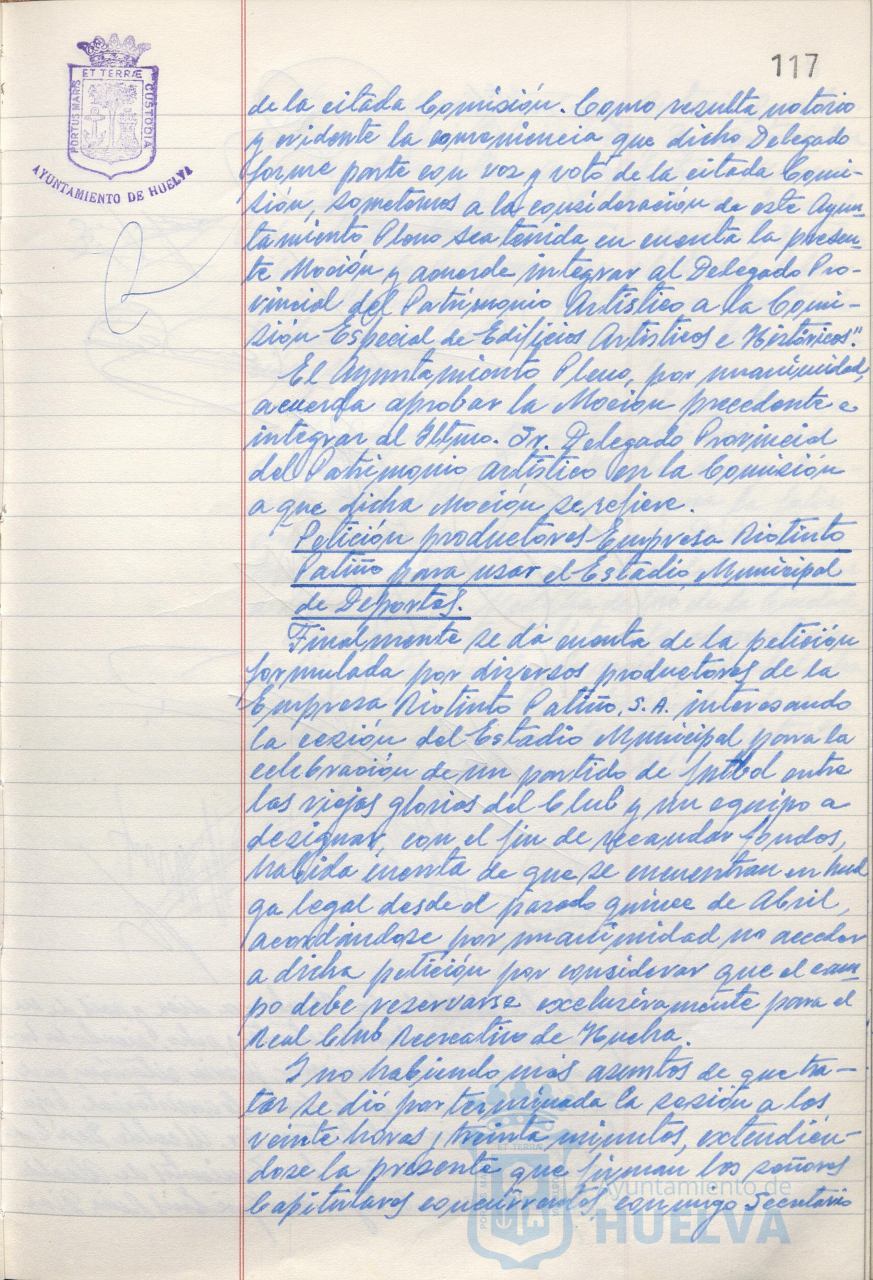 117
ET TERRÆ
PORTUS MARIS
CUSTODIA
AYUNTAMIENTO DE HUELVA
de la citada Comisión. Como resulta notorio
y evidente la conveniencia que dicho Delegado
forme parte con voz y voto de la citada Comi-
sión, sometemos a la consideración de este Ayun-
tamiento Pleno sea tenida en cuenta la presen-
te Moción y acuerde integrar al Delegado Pro-
vincial del Patrimonio Artístico a la Comi-
sión Especial de Edificios Artísticos e Históricos".
El Ayuntamiento Pleno, por unanimidad,
acuerda aprobar la Moción precedente e
integrar al Iltmo. Sr. Delegado Provincial
del Patrimonio artístico en la Comisión
a que dicha Moción se refiere.
Petición productores Empresa Riotinto
Patiño para usar el Estadio Municipal
de Deportes.
Finalmente se dá cuenta de la petición
formulada por diversos productores de la
Empresa Riotinto Patiño, S.A. interesando
la cesión del Estadio Municipal para la
celebración de un partido de futbol entre
las viejas glorias del Club y un equipo a
designar, con el fin de recaudar fondos,
habida cuenta de que se encuentran en huel
ga legal desde el pasado quince de Abril,
acordándose por unanimidad no acceder
a dicha petición por considerar que el cam-
po debe reservarse exclusivamente para el
Real Club Recreativo de Huelva.
Y no habiendo más asuntos de que tra-
tar se dió por terminada la sesión a las
veinte horas y treinta minutos, extendién-
dose la presente que firman los señores
Capitulares concurrentes, conmigo Secretario
Ayuntamiento de
HUELVA